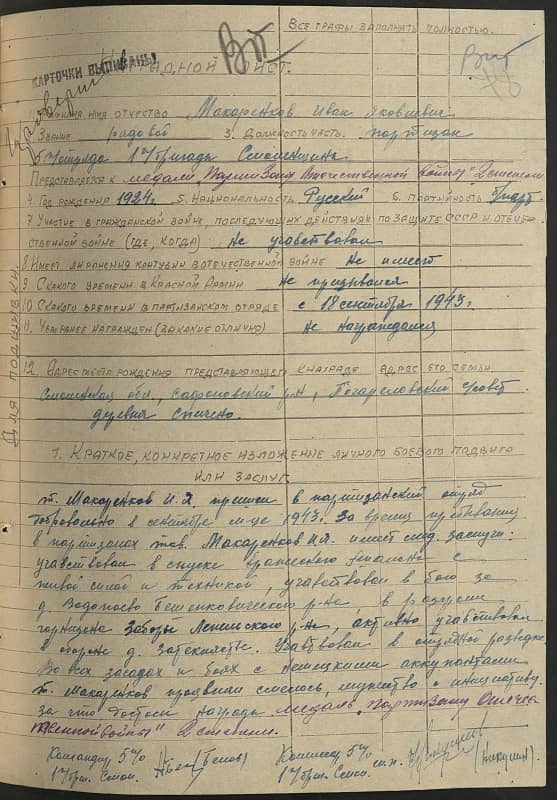 Все графы заполнять полностью.
ВП
КАРТОЧКИ ВЫПИСАНЫ
Наградной лист.
имя отчество Макаренков Иван Яковлевич
Звание рядовой 3. Должность часть. партизан
5 отряда 17 бригады Смоленщина
Представляется к медали "Партизану Отечественной войны" 2 степени
4. Год рождения 1924г. 5. Национальность Русский 6. Партийность б/парт.
7. Участие в гражданской войне, последующих действиях по защите СССР и отече-
ственной войне (где, когда) не участвовал
8. Имеет ли ранения контузии в отечественной войне не имеет
9. С какого времени в Красной Армии не призывался
10. С какого времени в партизанском отряде с 18 сентября 1943г.
11. Чем ранее награжден (за какие отличия) не награждался
12. Адрес места рождения представляемого к награде адрес его семьи.
Смоленская обл., р-н,
деревня
Для подшивки.
1. Краткое, конкретное изложение личного боевого подвига
или заслуг
т. Макаренков И.Я. пришел в партизанский отряд
добровольно в сентябре м-це 1943г. За время пребывания
в партизанах тов. Макаренков И.Я. имеет след. заслуги:
участвовал в спуске вражеского эшелона с
живой силой и техникой, участвовал в бою за
д. Бешенковического р-на, в разгроме
гарнизона Заборье р-на, активно участвовал
в обороне д. Участвовал в отрядной разведке
Во всех засадах и боях с немецкими оккупантами
т. Макаренков проявлял смелость, мужество и инициативу.
за что достоин награды медаль "партизану Отечес-
твенной войны" 2 степени.
Командир 5 п/о (Белов) Комиссар 5 п/о
17 бриг. Смол. 17 бриг. Смол. (Никулин).